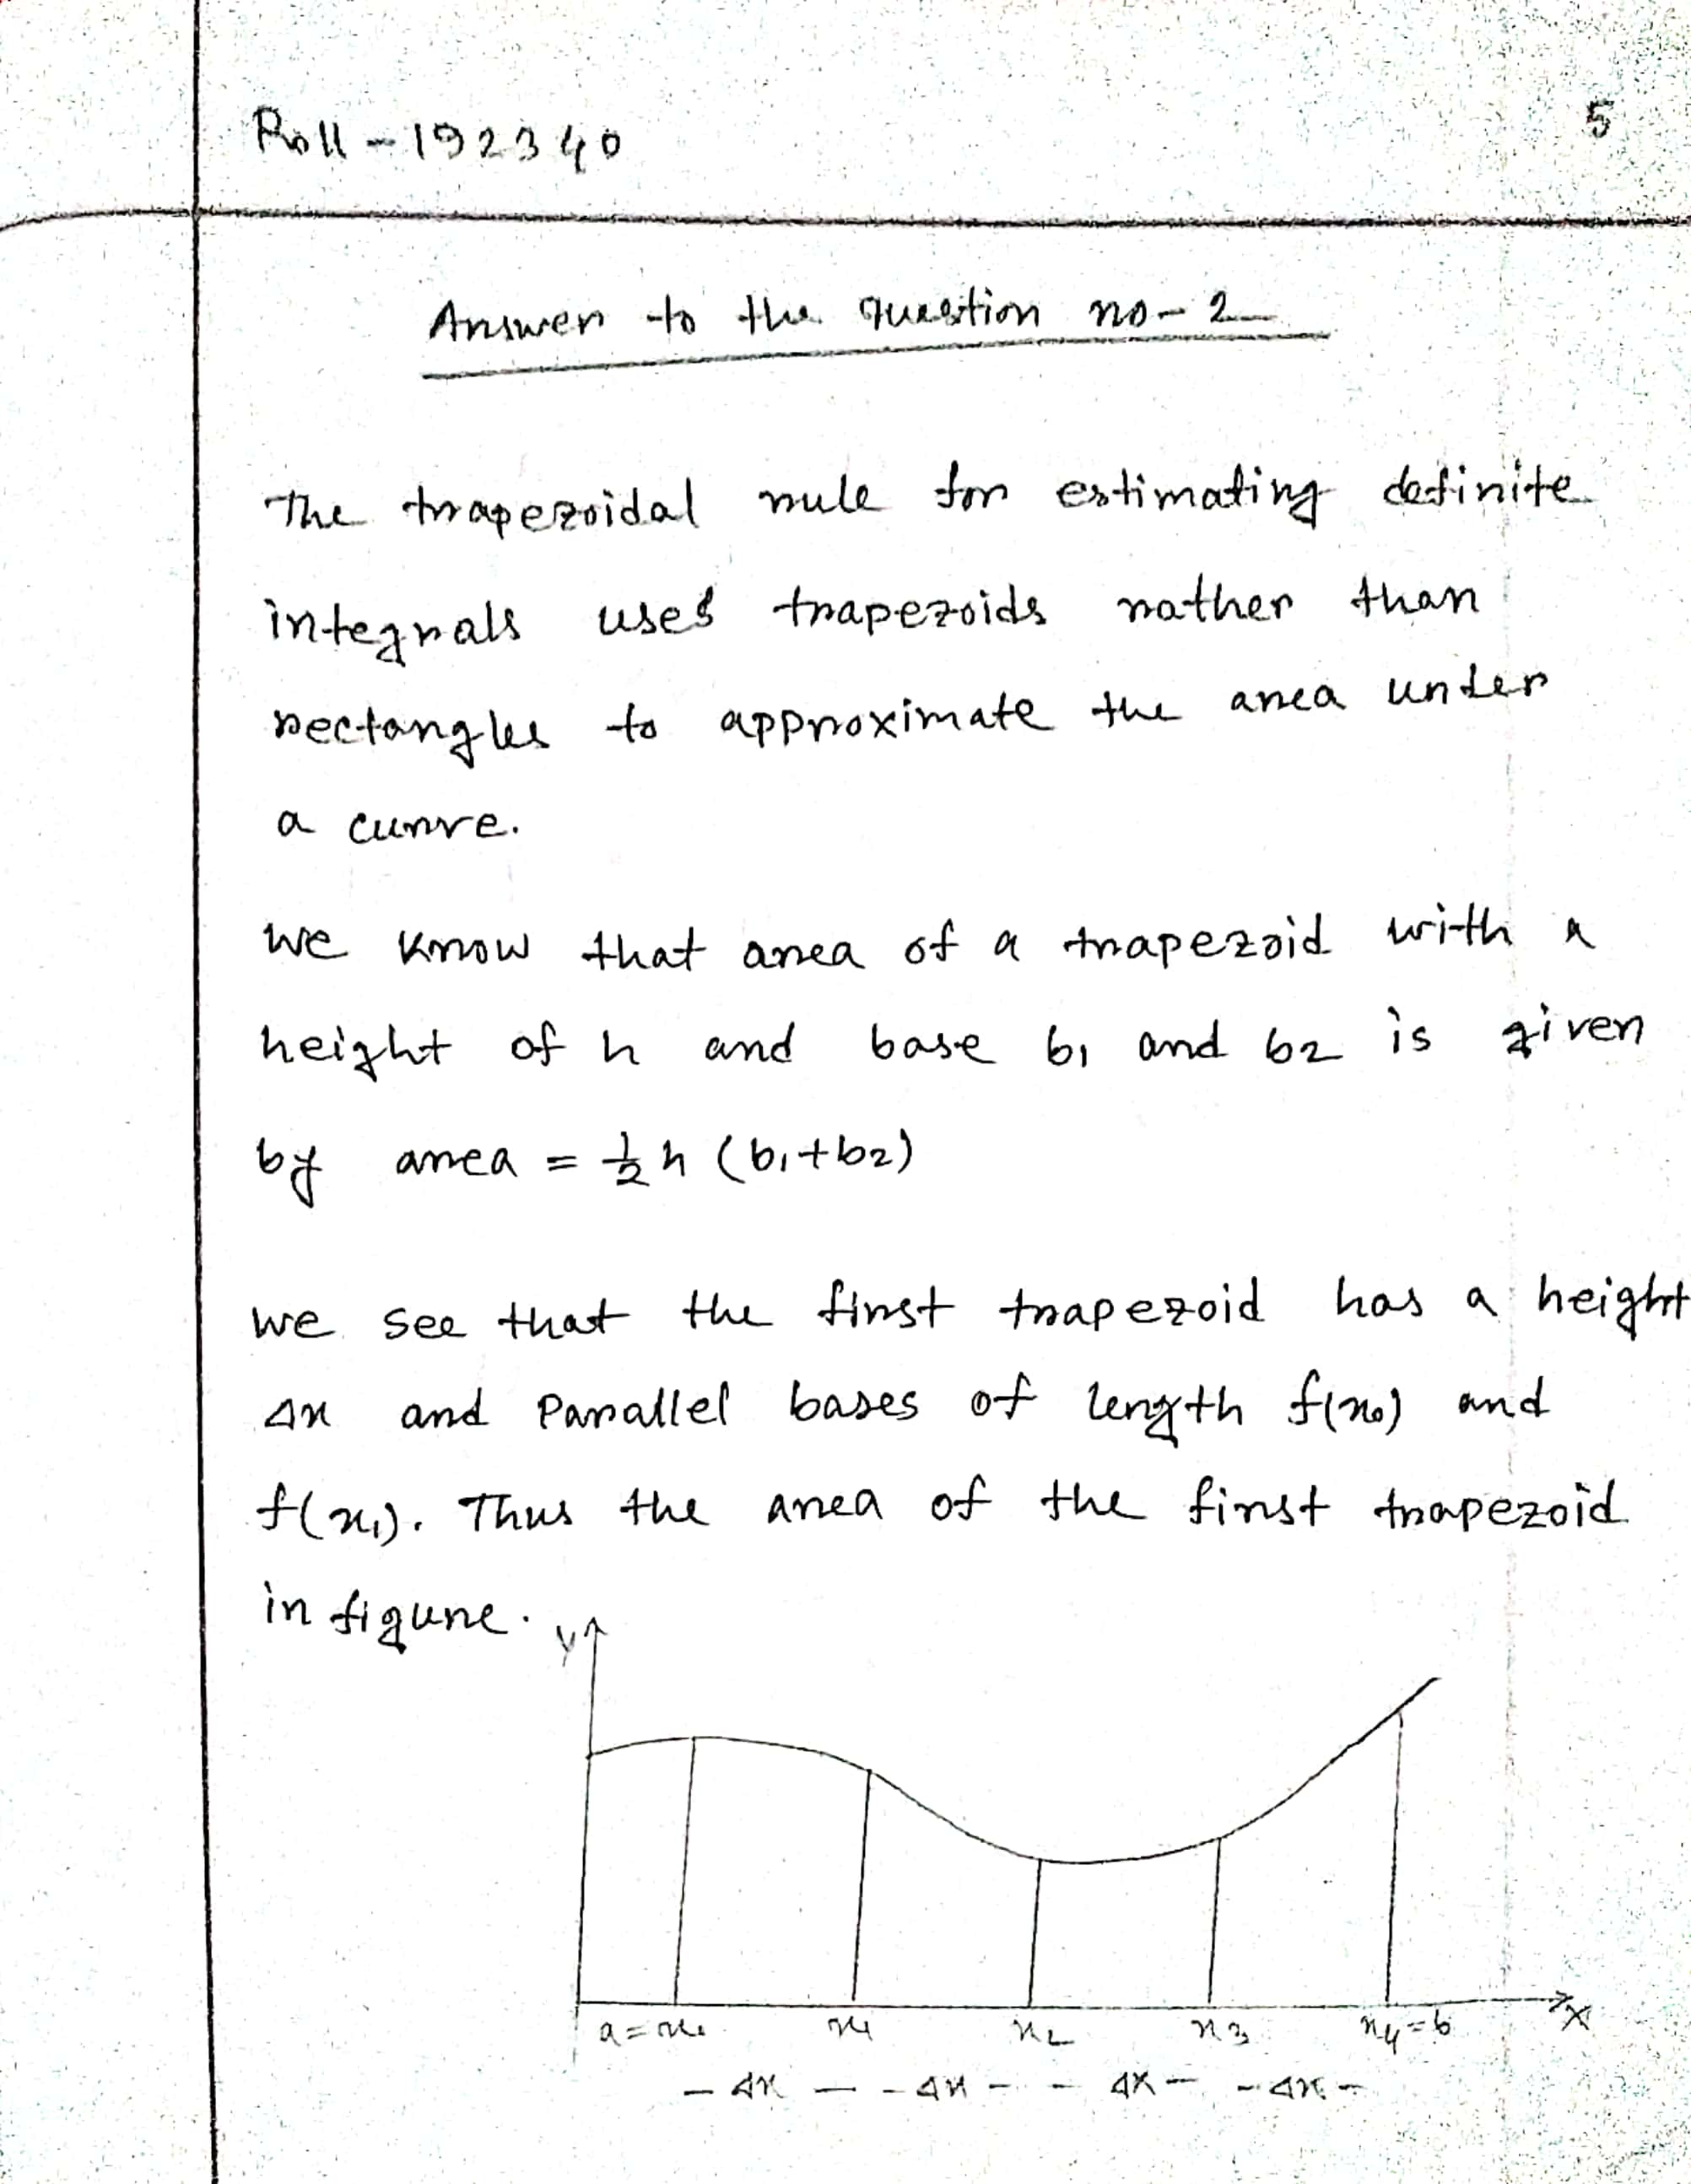 Roll - 192340
5
Answer to the question no - 2
The trapezoidal rule for estimating definite
integrals uses trapezoids rather than
rectangles to approximate the area under
a curve.
We know that area of a trapezoid with a
height of h and base b₁ and b₂ is given
by area = ½ h (b₁+b₂)
We see that the first trapezoid has a height
Δx and Parallel bases of length f(x₀) and
f(x₁). Thus the area of the first trapezoid
in figure.
y
x
a = x₀ x₁ x₂ x₃ x₄ = b
- Δx - - Δx - - Δx - - Δx -